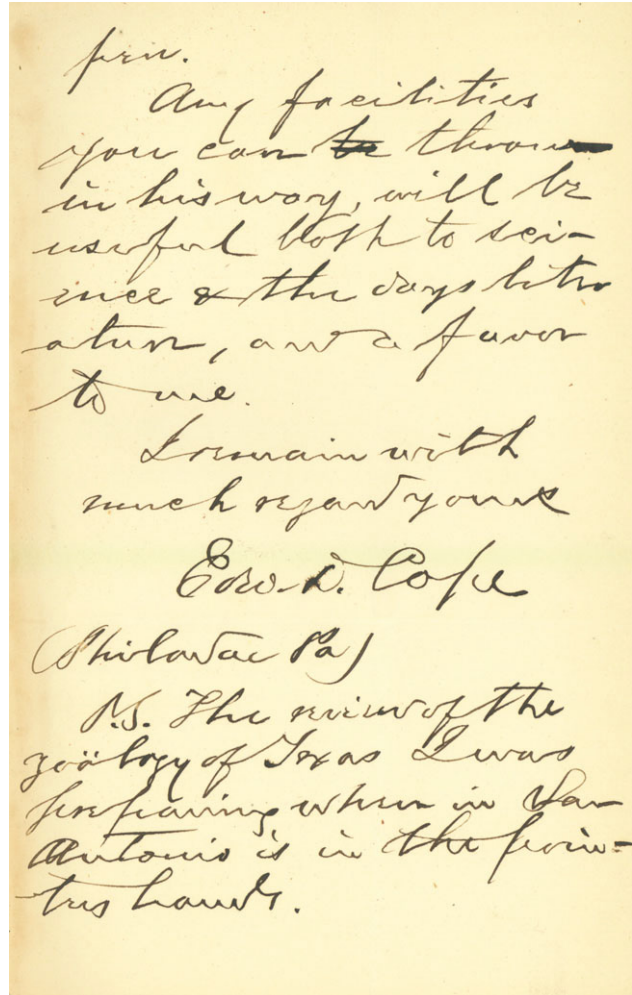 pen.
Any facilities
you can throw
in his way, will be
useful both to sci-
ence & the days liter
ature, and a favor
to me.
I remain with
much regard yours
Edw. D. Cope
(Philadae Pa)
P.S. The review of the
zoölogy of Texas I was
preparing when in San
Antonio is in the prin-
ters hands.